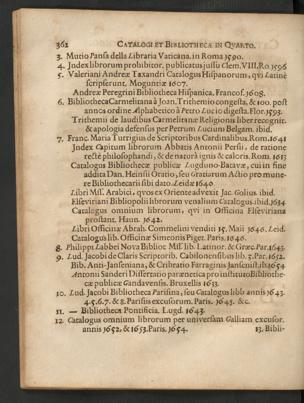 362 CATALOGI ET BIBLIOTHECÆ IN QUARTO.
3. Mutio Pansa della Libraria Vaticana. in Roma 1590.
4. Index librorum prohibitor. publicatus jussu Clem. VIII. Ro. 1596
5. Valeriani Andreæ Taxandri Catalogus Hispanorum, qvi Latinè
scripserunt. Moguntiæ 1607.
Andreæ Peregrini Bibliotheca Hispanica. Francof. 1608.
6. Bibliotheca Carmelitana à Joan. Trithemio congesta, & 100. post
annos ordine Alphabetico à Petro Lucio digesta. Flor. 1593.
Trithemii de laudibus Carmelitanæ Religionis liber recognit.
& apologia defensus per Petrum Lucium Belgam. ibid.
7. Franc. Maria Turrigius de Scriptoribus Cardinalibus. Rom. 1641
Index Capitum librorum Abbatis Antonii Persii, de ratione
rectè philosophandi, & de natura ignis & caloris. Rom. 1613
Catalogus Bibliothecæ publicæ Lugduno-Batavæ, cui in fine
addita Dan. Heinsii Oratio, seu Gratiarum Actio pro mune-
re Bibliothecariis sibi dato. Leidæ 1640
Libri MSS. Arabici, qvos ex Oriente advexit Jac. Golius. ibid.
Elseviriani Bibliopolii librorum venalium Catalogus. ibid. 1634
Catalogus omnium librorum, qvi in Officina Elseviriana
prostant. Haun. 1642.
Libri Officinæ Abrah. Commelini venditi 15. Maii 1640. Leid.
Catalogus lib. Officinæ Simeonis Piget. Paris. 1646.
8. Philippi Labbei Nova Biblioc MSS lib. Latinor. & Græc. Par. 1643.
9. Lud. Jacobi de Claris Scriptorib. Cabilonensibus lib. 3. Par. 1652.
Bib. Anti-Janseniana, & Cribratio Farraginis Jansenist. ib. 1654
Antonii Sanderi Dissertatio parænetica pro instituto Bibliothe-
cæ publicæ Gandavensis. Bruxellis 1633.
10. Lud. Jacobi Bibliotheca Parisina, seu Catalogus libb annis 1643.
4. 5. 6. 7. & 8. Parisiis excusorum. Paris. 1645. &c.
11. — Bibliotheca Pontificia. Lugd. 1643.
12. Catalogus omnium librorum per universam Galliam excusor.
annis 1652. & 1653. Paris. 1654.
13. Bibli-